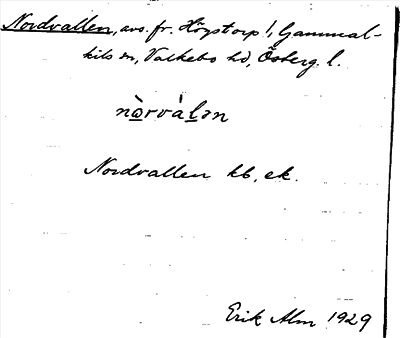 Nordvallen, avs. fr. Högstorp!, Gammal-
kils sn, Valkebo hd, Österg. l.
nὼrvὰlən
Nordvallen kb, ek.
Erik Alm 1929